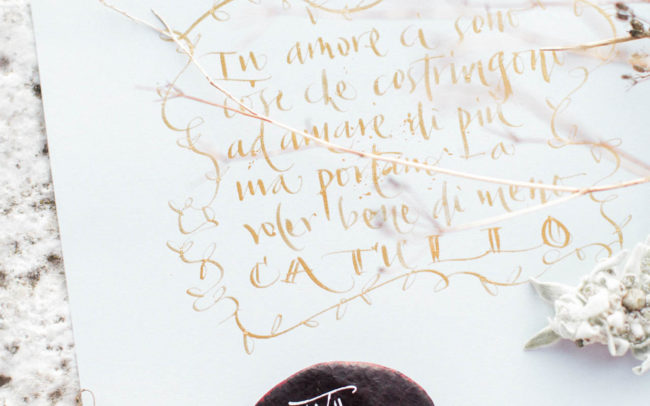 In amore ci sono
cose che costringono
ad amare di più
ma portano a
voler bene di meno
CATULLO